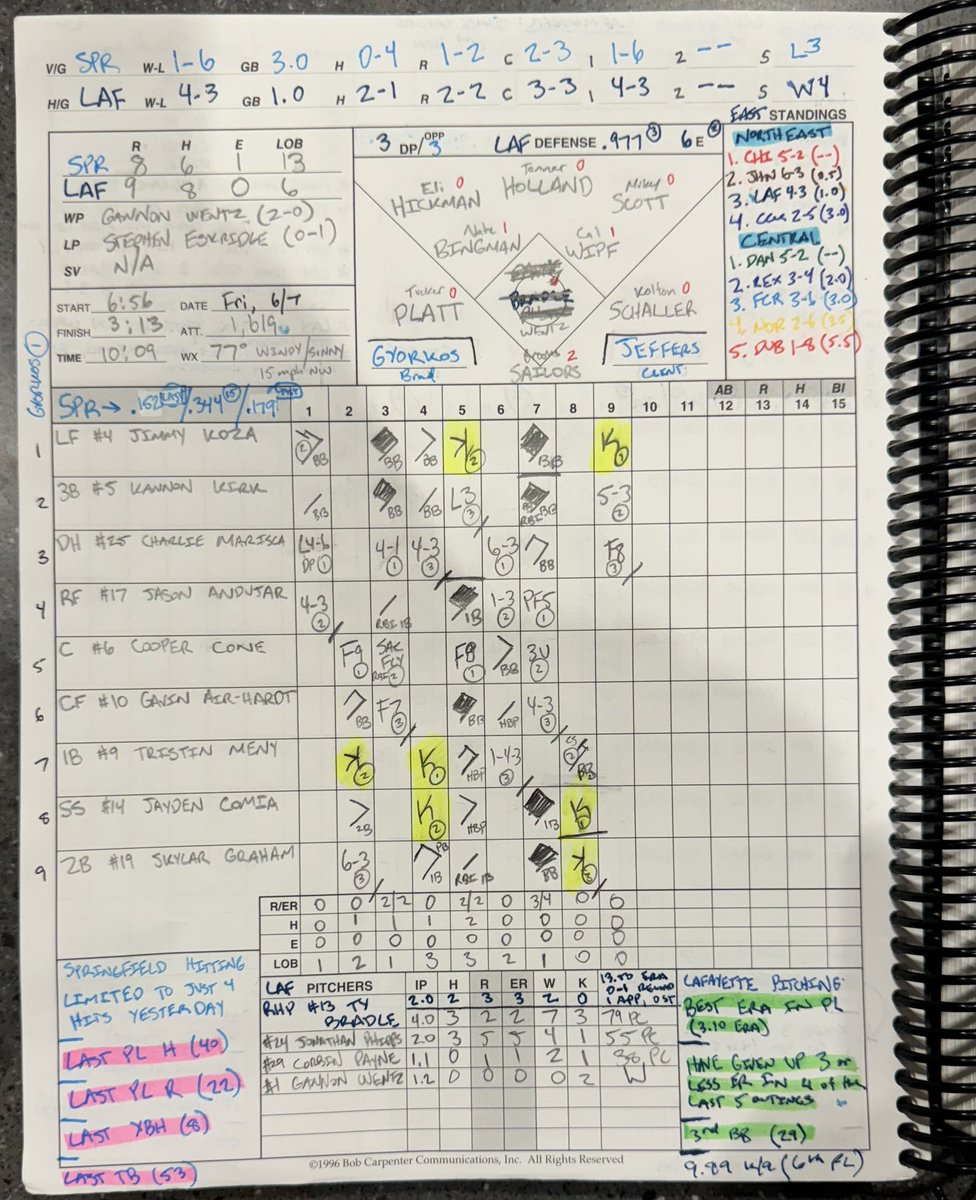 V/G SPR W-L 1-6 GB 3.0 H 0-4 R 1-2 C 2-3 1 1-6 2 -- S L3
H/G LAF W-L 4-3 GB 1.0 H 2-1 R 2-2 C 3-3 1 4-3 2 -- S W4
EAST STANDINGS
R H E LOB
SPR 8 6 1 13
LAF 9 8 0 6
WP GANNON WENTZ (2-0)
LP STEPHEN ESKRIDGE (0-1)
SV N/A
START 6:56 DATE Fri, 6/7
FINISH 3:13 ATT. 1,619
TIME 10:09 WX 77° WINDY/SUNNY
15 mph NW
3 DP/OPP 3 LAF DEFENSE .977 3 6 E
Tanner 0
HOLLAND
Eli 0
HICKMAN
Mikey 0
SCOTT
Nate 1
BINGMAN
Cal 1
WIPF
Tucker 0
PLATT
WENTZ
Kolton 0
SCHALLER
GYORKOS
Brad
Brooks 2
SAILORS
JEFFERS
CLINT
NORTHEAST
1. CHI 5-2 (--)
2. JHN 6-3 (0.5)
3. LAF 4-3 (1.0)
4. 2-5 (3.0)
CENTRAL
1. DAN 5-2 (--)
2. REX 3-4 (2.0)
3. FCR 3-6 (3.0)
4. NOR 2-6
5. DUB 1-8 (5.5)
GYORKOS 1
SPR → .162 LAST/.344 15/.179
1 2 3 4 5 6 7 8 9 10 11 AB 12 R 13 H 14 BI 15
1 LF #4 JIMMY KOZA 2 BB BB BB K 2 BB K 1
2 3B #5 KANNON KIRK BB BB BB L3 3 RBI BB 5-3 2
3 DH #25 CHARLIE MARISCA L4-6 DP 1 4-1 1 4-3 3 6-3 1 BB F8 3
4 RF #17 JASON ANDUJAR 4-3 2 RBI 1B 1B 1-3 2 PF5 1
5 C #6 COOPER CONE F9 1 SAC FLY RBI 2 F8 1 BB 3U 2
6 CF #10 GAVIN AIR-HARDT BB F7 3 BB HBP 4-3 3
7 1B #9 TRISTIN MENY K 2 K 1 HBP 1-43 3 CS 2 BB
8 SS #14 JAYDEN COMIA 2B K 2 HBP 1B K
9 2B #19 SKYLAR GRAHAM 6-3 3 PB 1B RBI 1B BB K 3
R/ER 0 0 2/2 0 2/2 0 3/4 0 0
H 0 1 1 1 2 0 0 0 0
E 0 0 0 0 0 0 0 0 0
LOB 1 2 1 3 3 2 1 0 0
SPRINGFIELD HITTING
LIMITED TO JUST 4
HITS YESTERDAY
LAST PL H (40)
LAST PL R (22)
LAST XBH (8)
LAST TB (53)
LAF PITCHERS IP H R ER W K 13.50 ERA
RHP #13 TY 2.0 2 3 3 2 0 1 APP, 0 ST
BRADLE 4.0 3 2 2 7 3 79 PC
#24 JONATHAN PHIPPS 2.0 3 5 5 4 1 55 PC
#29 CORBIN PAYNE 1.1 0 1 1 2 1 38 PC
#1 GANNON WENTZ 1.2 0 0 0 0 2 W
LAFAYETTE PITCHING:
BEST ERA IN PL
(3.10 ERA)
HAVE GIVEN UP 3 or
LESS ER IN 4 of the
LAST 5 OUTINGS
3rd BB (29)
9.89 K/9 (6th PL)
©1996 Bob Carpenter Communications, Inc. All Rights Reserved